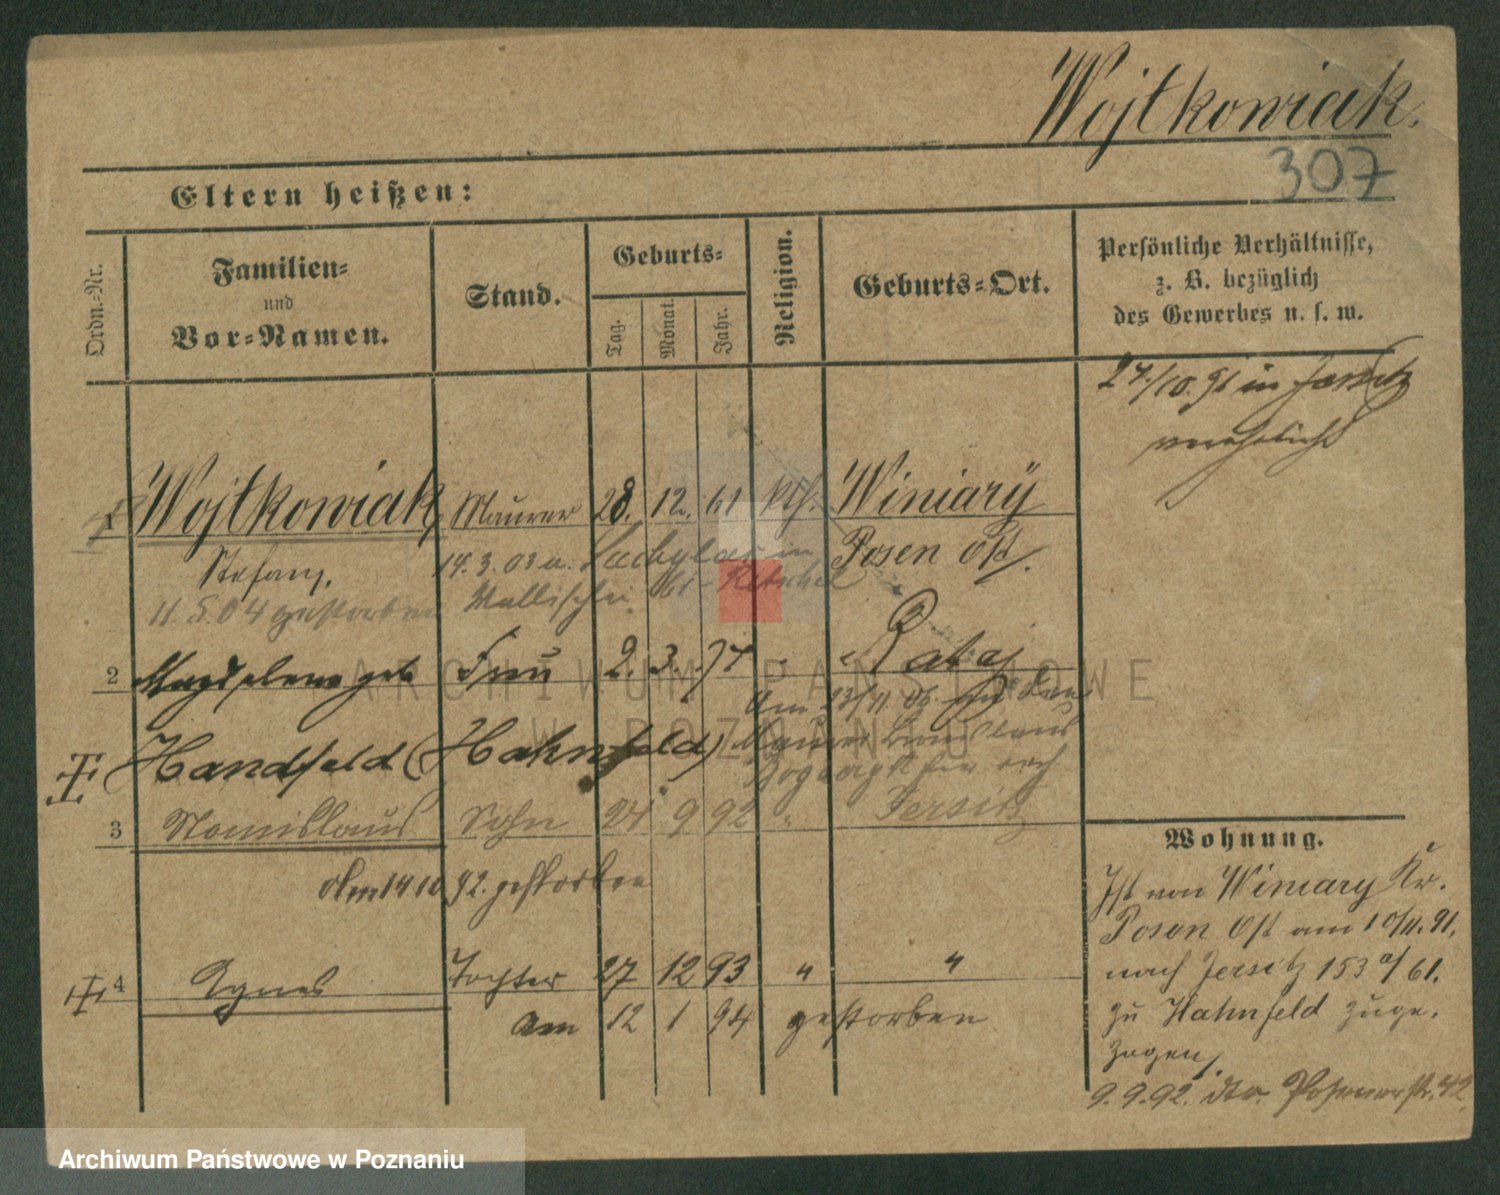 Wojtkowiak.
307
Eltern heißen:
Ordn.-Nr.
Familien-
und
Vor-Namen.
Stand.
Geburts-
Tag.
Monat.
Jahr.
Religion.
Geburts-Ort.
Persönliche Verhältnisse,
z. B. bezüglich
des Gewerbes u. s. w.
27./10. 91 in Jersitz
verehelicht
1 Wojtkowiak, Maurer 28. 12. 61 kth. Winiary
Stefan, Posen Ost.
14. 3. 03 a. in
11. 5. 04 gestorben Wallischei
2 Magdalena geb. Frau 2. 3. 71 " Rataj
Am 23/11. 06
Handfeld (Hahnfeld)
3 Stanislaus Sohn 24 9 92 " Jersitz
Am 14 10 92. gestorben
4 Agnes Tochter 27 12 93 " "
am 12 1 94 gestorben
Wohnung.
Ist von Winiary Kr.
Posen Ost am 10/11. 91.
nach Jersitz 153 a/61.
zu Hahnfeld zuge-
zogen,
9. 9. 92. dto. Posenerstr. 42
ARCHIWUM PAŃSTWOWE
W POZNANIU
Archiwum Państwowe w Poznaniu